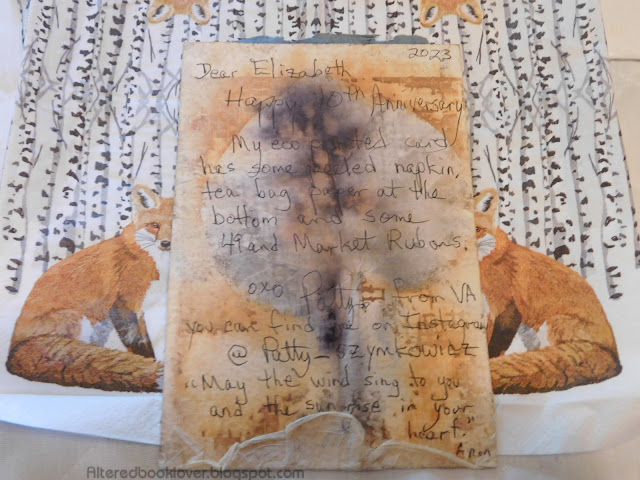 2023
Dear Elizabeth
Happy 10th Anniversary!
My eco printed card
has some beeded napkin,
tea bag paper at the
bottom and some
49 and Market Rubons.
oxo Patty from VA
you can find me on Instagram
@ Patty_szymkowicz
"May the wind sing to you
and the sunrise in your
heart."
Anon
Alteredbooklover.blogspot.com